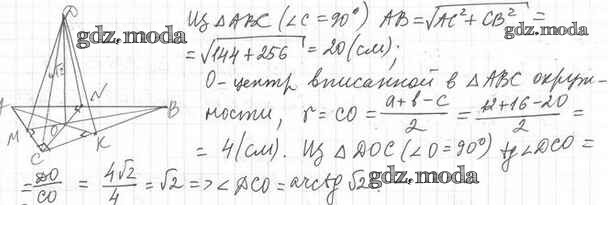 D
gdz.moda
4√2
N
A
B
M
O
C
K
Из △ABC (∠C = 90°) AB = √AC² + CB² =
gdz.moda
= √144 + 256 = 20 (см);
O - центр вписанной в △ABC окруж-
ности, r = CO = a+b-c/2 = 12+16-20/2 =
= 4 (см). Из △DOC (∠O = 90°) tg∠DCO =
= DO/CO = 4√2/4 = √2 => ∠DCO = arctg √2.
gdz.moda